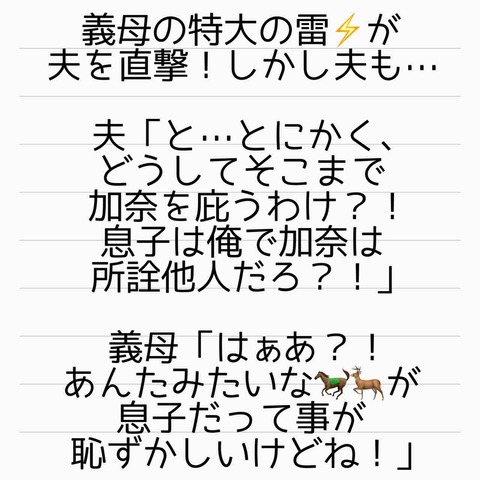 義母の特大の雷⚡が
夫を直撃！しかし夫も…
夫「と…とにかく、
どうしてそこまで
加奈を庇うわけ？！
息子は俺で加奈は
所詮他人だろ？！」
義母「はぁあ？！
あんたみたいな🐎🦌が
息子だって事が
恥ずかしいけどね！」